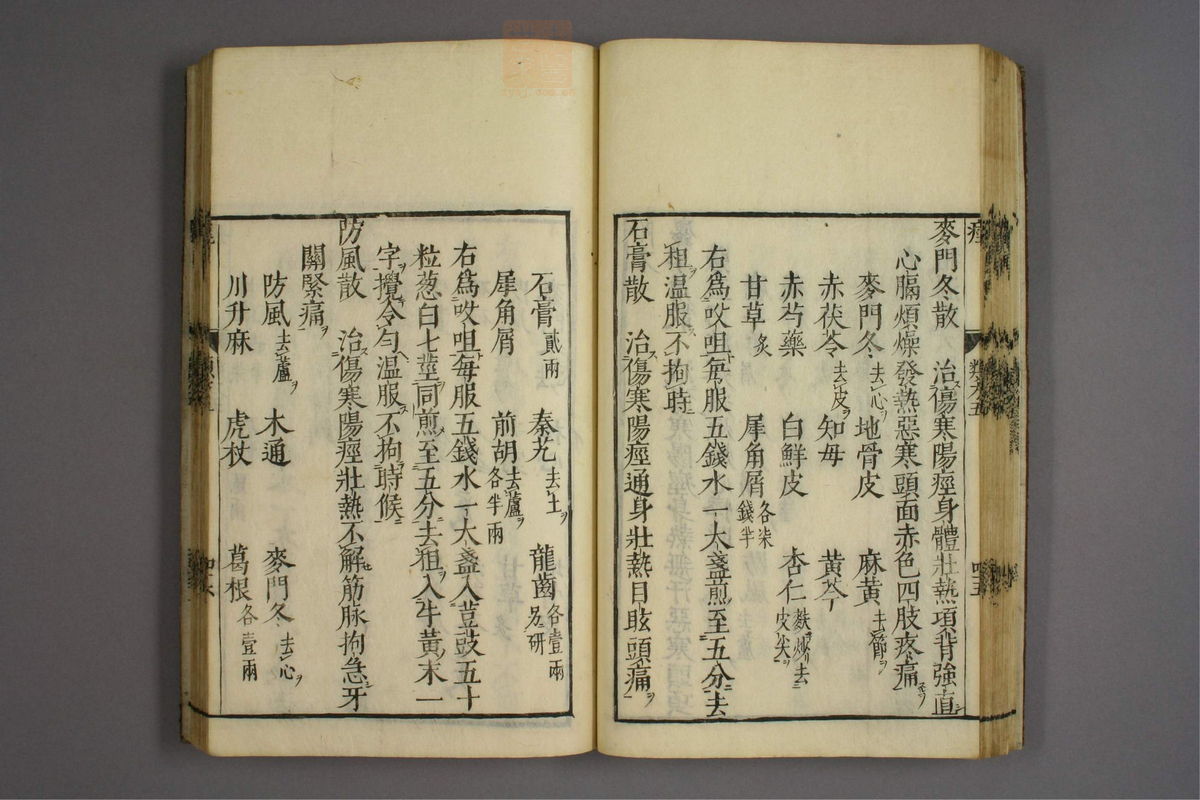 麥門冬散　治傷寒陽痙身體壯熱項背強直
心膈煩燥發熱惡寒頭面赤色四肢疼痛
麥門冬去心　地骨皮　麻黄去節
赤茯苓去皮　知母　黄芩
赤芍藥　白鮮皮　杏仁麩燥去皮尖
甘草炙　犀角屑各柒錢半
右爲㕮咀每服五錢水一大盞煎至五分去
柤温服不拘時
石膏散　治傷寒陽痙通身壯熱目眩頭痛
石膏貳兩　秦艽去土　龍齒各壹兩另研
犀角屑　前胡去蘆各半兩
右爲㕮咀每服五錢水一大盞入荳豉五十
粒葱白七莖同煎至五分去柤入牛黄末一
字攪令匀温服不拘時候
防風散　治傷寒陽痙壯熱不解筋脉拘急牙
關緊痛
防風去蘆　木通　麥門冬去心
川升麻　虎杖　葛根各壹兩